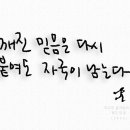 깨진 믿음을 다시
붙여도 자국이 남는다